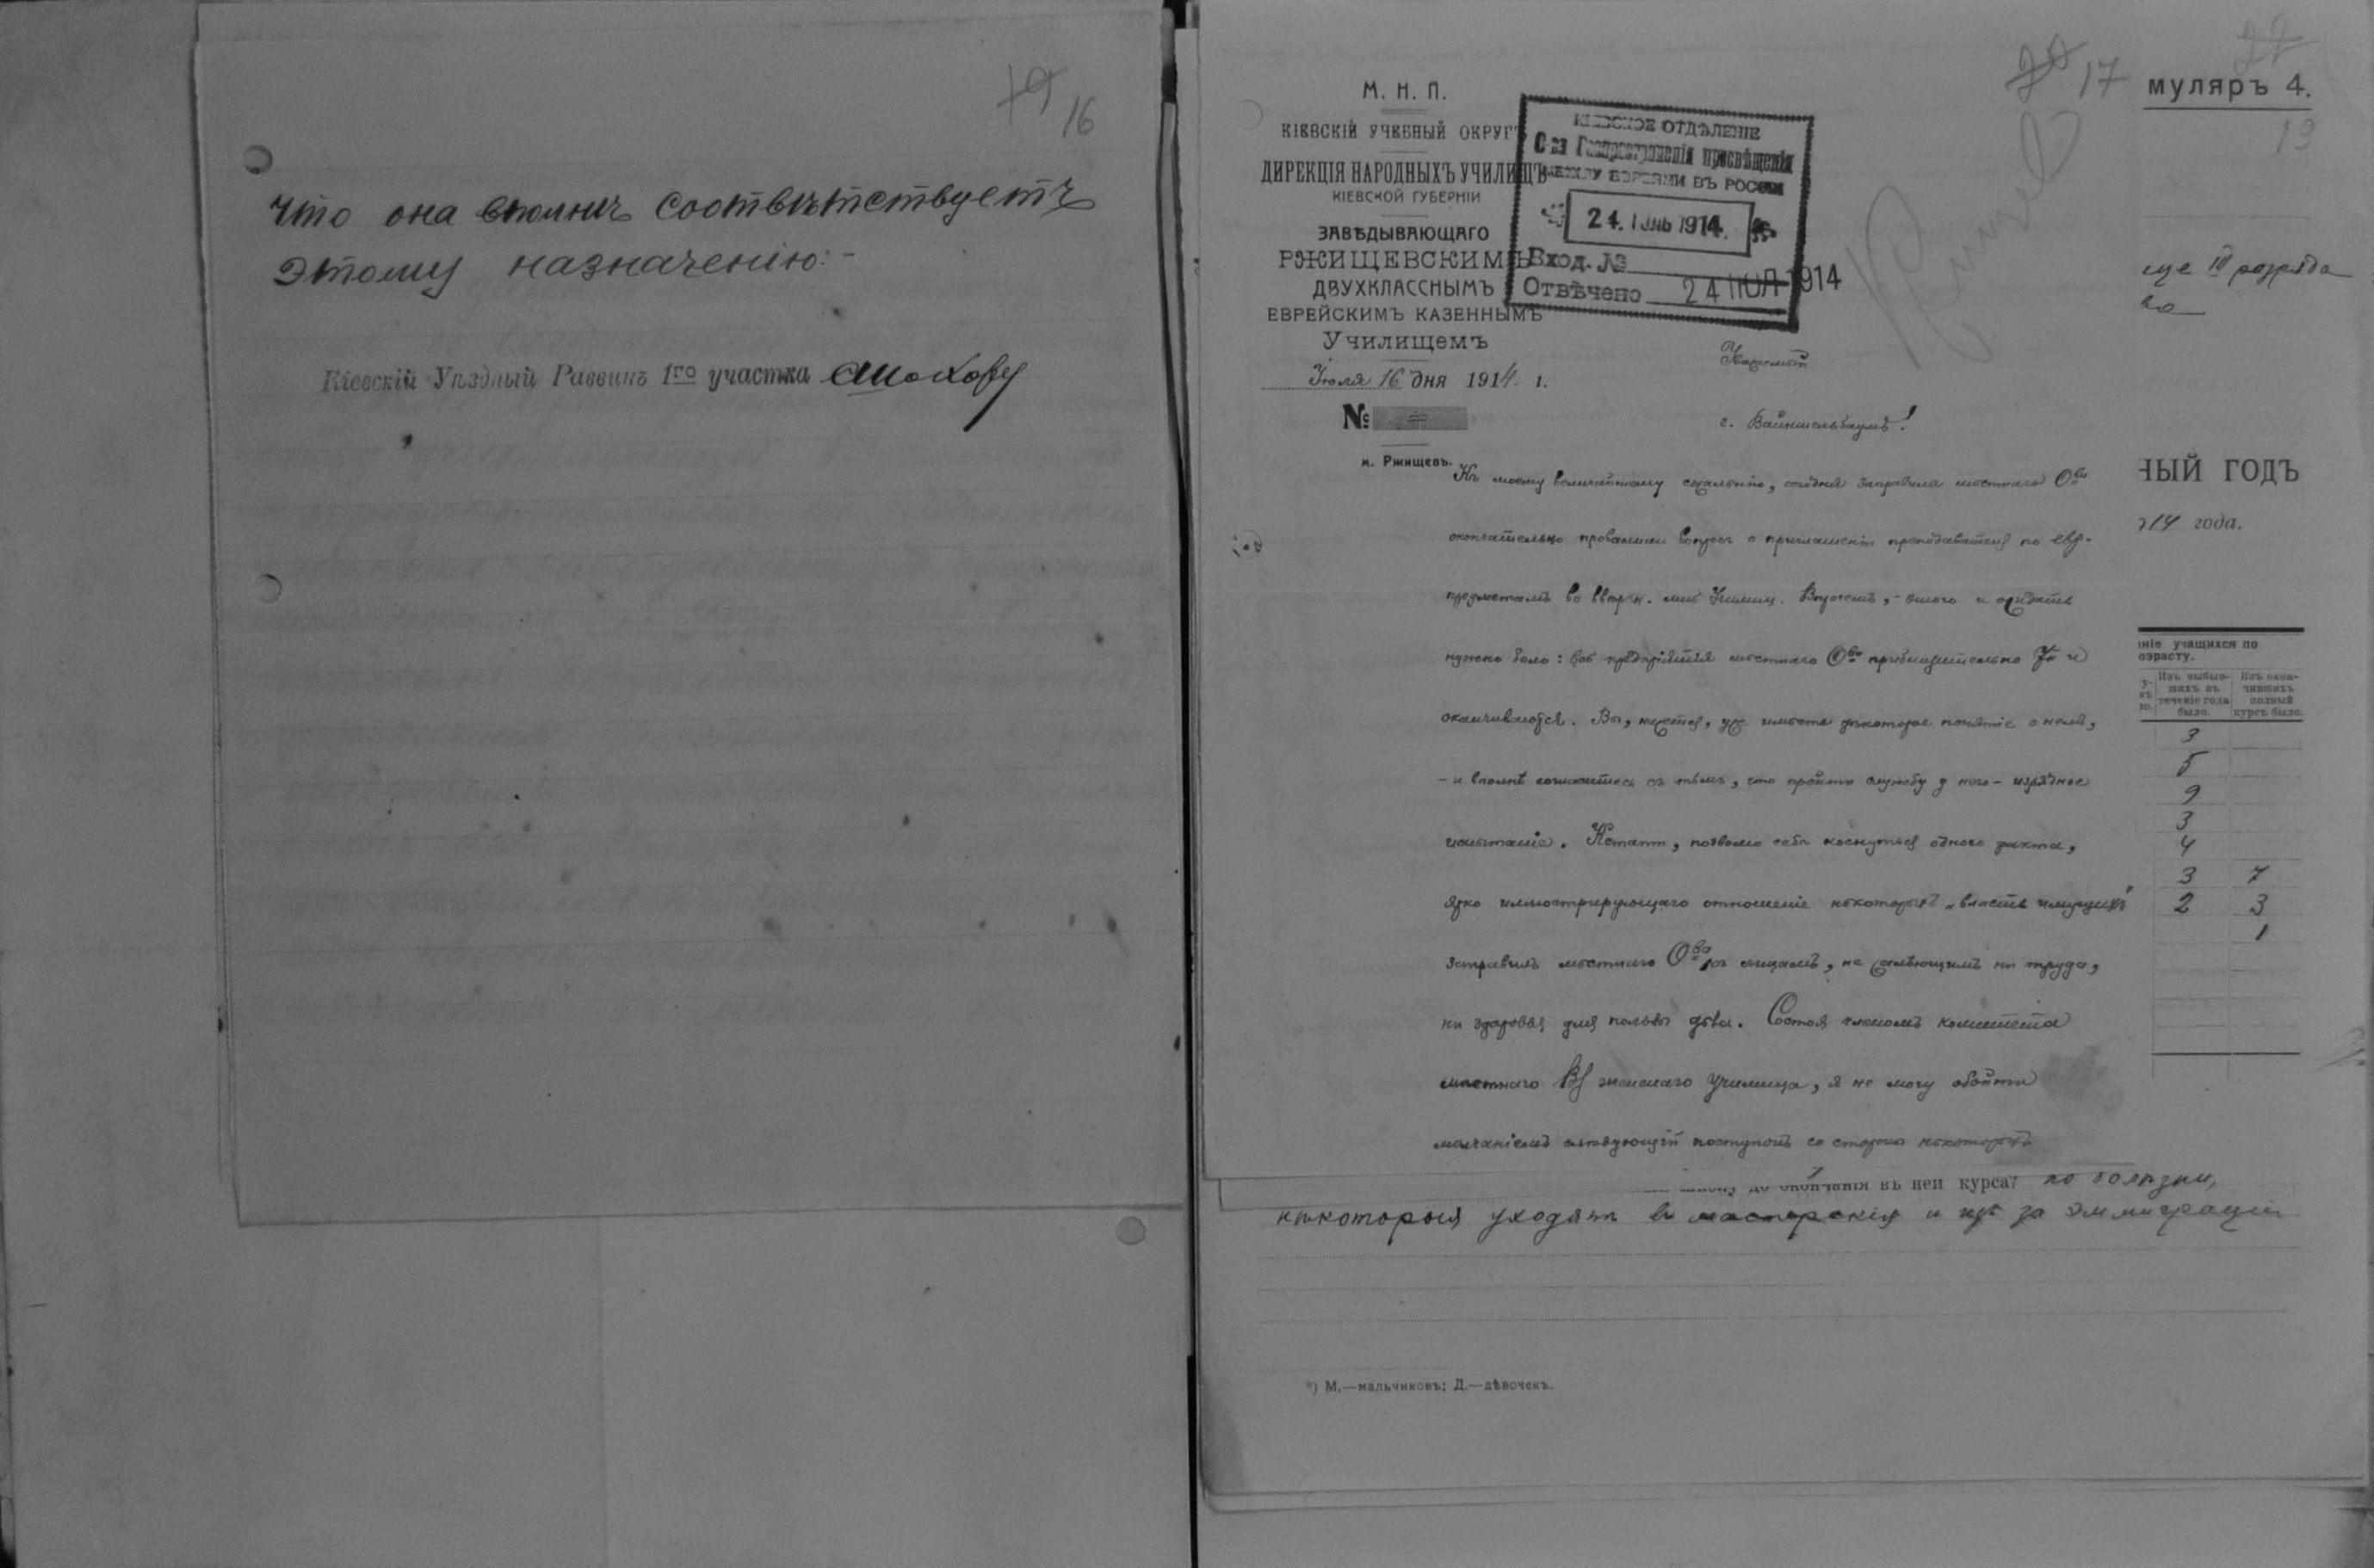 16
что она вполнѣ соотвѣтствуетъ
этому назначенію.-
Кіевскій Уѣздный Раввинъ 1го участка
17
М. Н. П.
КІЕВСКІЙ УЧЕБНЫЙ ОКРУГЪ
ДИРЕКЦІЯ НАРОДНЫХЪ УЧИЛИЩЪ
КІЕВСКОЙ ГУБЕРНІИ
ЗАВѢДЫВАЮЩАГО
РЖИЩЕВСКИМЪ
ДВУХКЛАССНЫМЪ
ЕВРЕЙСКИМЪ КАЗЕННЫМЪ
Училищемъ
Іюля 16 дня 1914 г.
№
м. Ржищевъ.
КІЕВСКОЕ ОТДѢЛЕНІЕ
О-ва Распространенія просвѣщенія
МЕЖДУ ЕВРЕЯМИ ВЪ РОССІИ
24. ІЮЛЬ 1914.
Вход. №
Отвѣчено 24 ІЮЛ 1914
г. Вайнштельбаумъ!
Къ моему величайшему сожалѣнію, сегодня заправилы мѣстнаго Ова
окончательно провалили вопросъ о приглашеніи преподавателя по евр.
предметамъ во ввѣрен. мнѣ Училищ. Впрочемъ, - этого и ожидать
нужно было: всѣ предпріятія мѣстнаго Ова приблизительно такъ и
оканчиваются. Вы, кажется, уже имѣете нѣкоторое понятіе о немъ,
- и вполнѣ согласитесь съ тѣмъ, что пройти службу у него - изрядное
испытаніе. Кстати, позволю себѣ коснуться одного факта,
ярко иллюстрирующаго отношеніе нѣкоторыхъ „власть имущихъ"
заправилъ мѣстнаго Ова къ лицамъ, не жалѣющимъ ни труда,
ни здоровья для пользы дѣла. Состоя членомъ комитета
мѣстнаго женскаго училища, я не могу обойти
молчаніемъ слѣдующій поступокъ со стороны нѣкоторыхъ
муляръ 4.
19
ще III разряда
во
НЫЙ ГОДЪ
914 года.
ніе учащихся по
озрасту.
Изъ выбыв-
шихъ въ
теченіе года
было.
Изъ окон-
чившихъ
полный
курсъ было.
3
5
9
3
4
3 7
2 3
1
до окончанія въ ней курса? по болѣзни,
нѣкоторыя уходятъ въ мастерскія и изъ за эммиграціи
*) М.—мальчиковъ; Д.—дѣвочекъ.